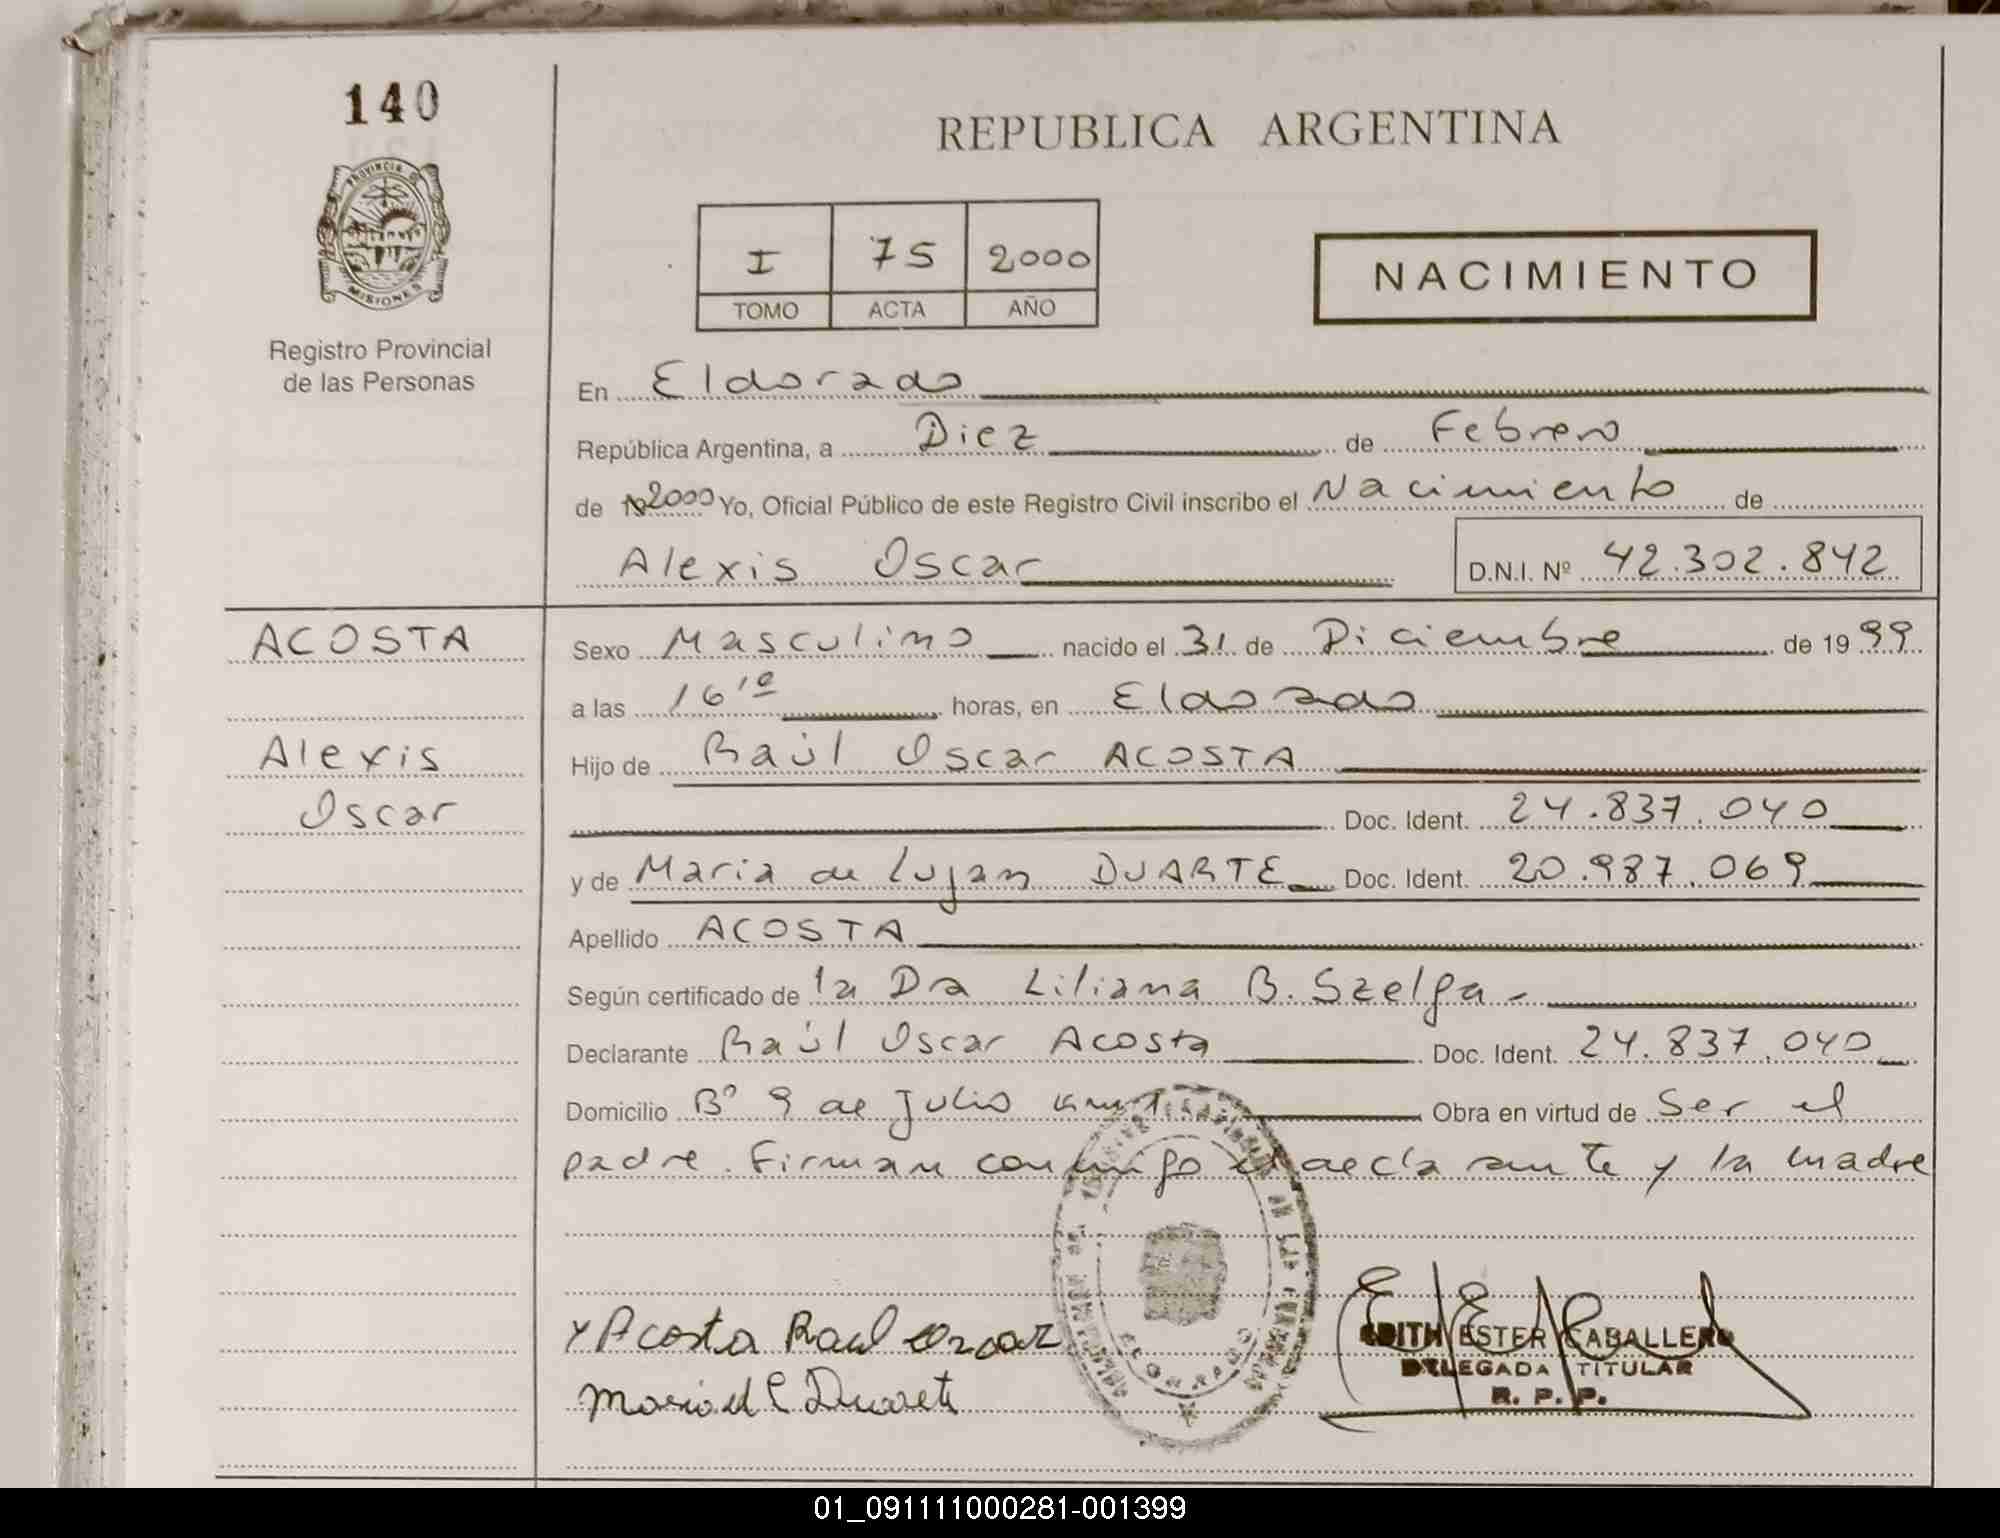 140
REPUBLICA ARGENTINA
PROVINCIA DE
MISIONES
Registro Provincial
de las Personas
I 75 2000
TOMO ACTA AÑO
NACIMIENTO
En Eldorado
República Argentina, a Diez de Febrero
de 2000 Yo, Oficial Público de este Registro Civil inscribo el Nacimiento de
Alexis Oscar D.N.I. Nº 42.302.842
ACOSTA
Alexis
Oscar
Sexo Masculino nacido el 31 de Diciembre de 1999
a las 16¹⁰ horas, en Eldorado
Hijo de Raúl Oscar ACOSTA
Doc. Ident. 24.837.040
y de Maria de Lujan DUARTE Doc. Ident. 20.987.069
Apellido ACOSTA
Según certificado de la Dra Liliana B. Szelga -
Declarante Raúl Oscar Acosta Doc. Ident. 24.837.040
Domicilio Bº 9 de Julio Obra en virtud de Ser el
padre. Firman conmigo el declarante y la madre
Acosta Raul Oscar
Duarte
EDITH ESTER CABALLERO
DELEGADA TITULAR
R. P. P.
01_091111000281-001399